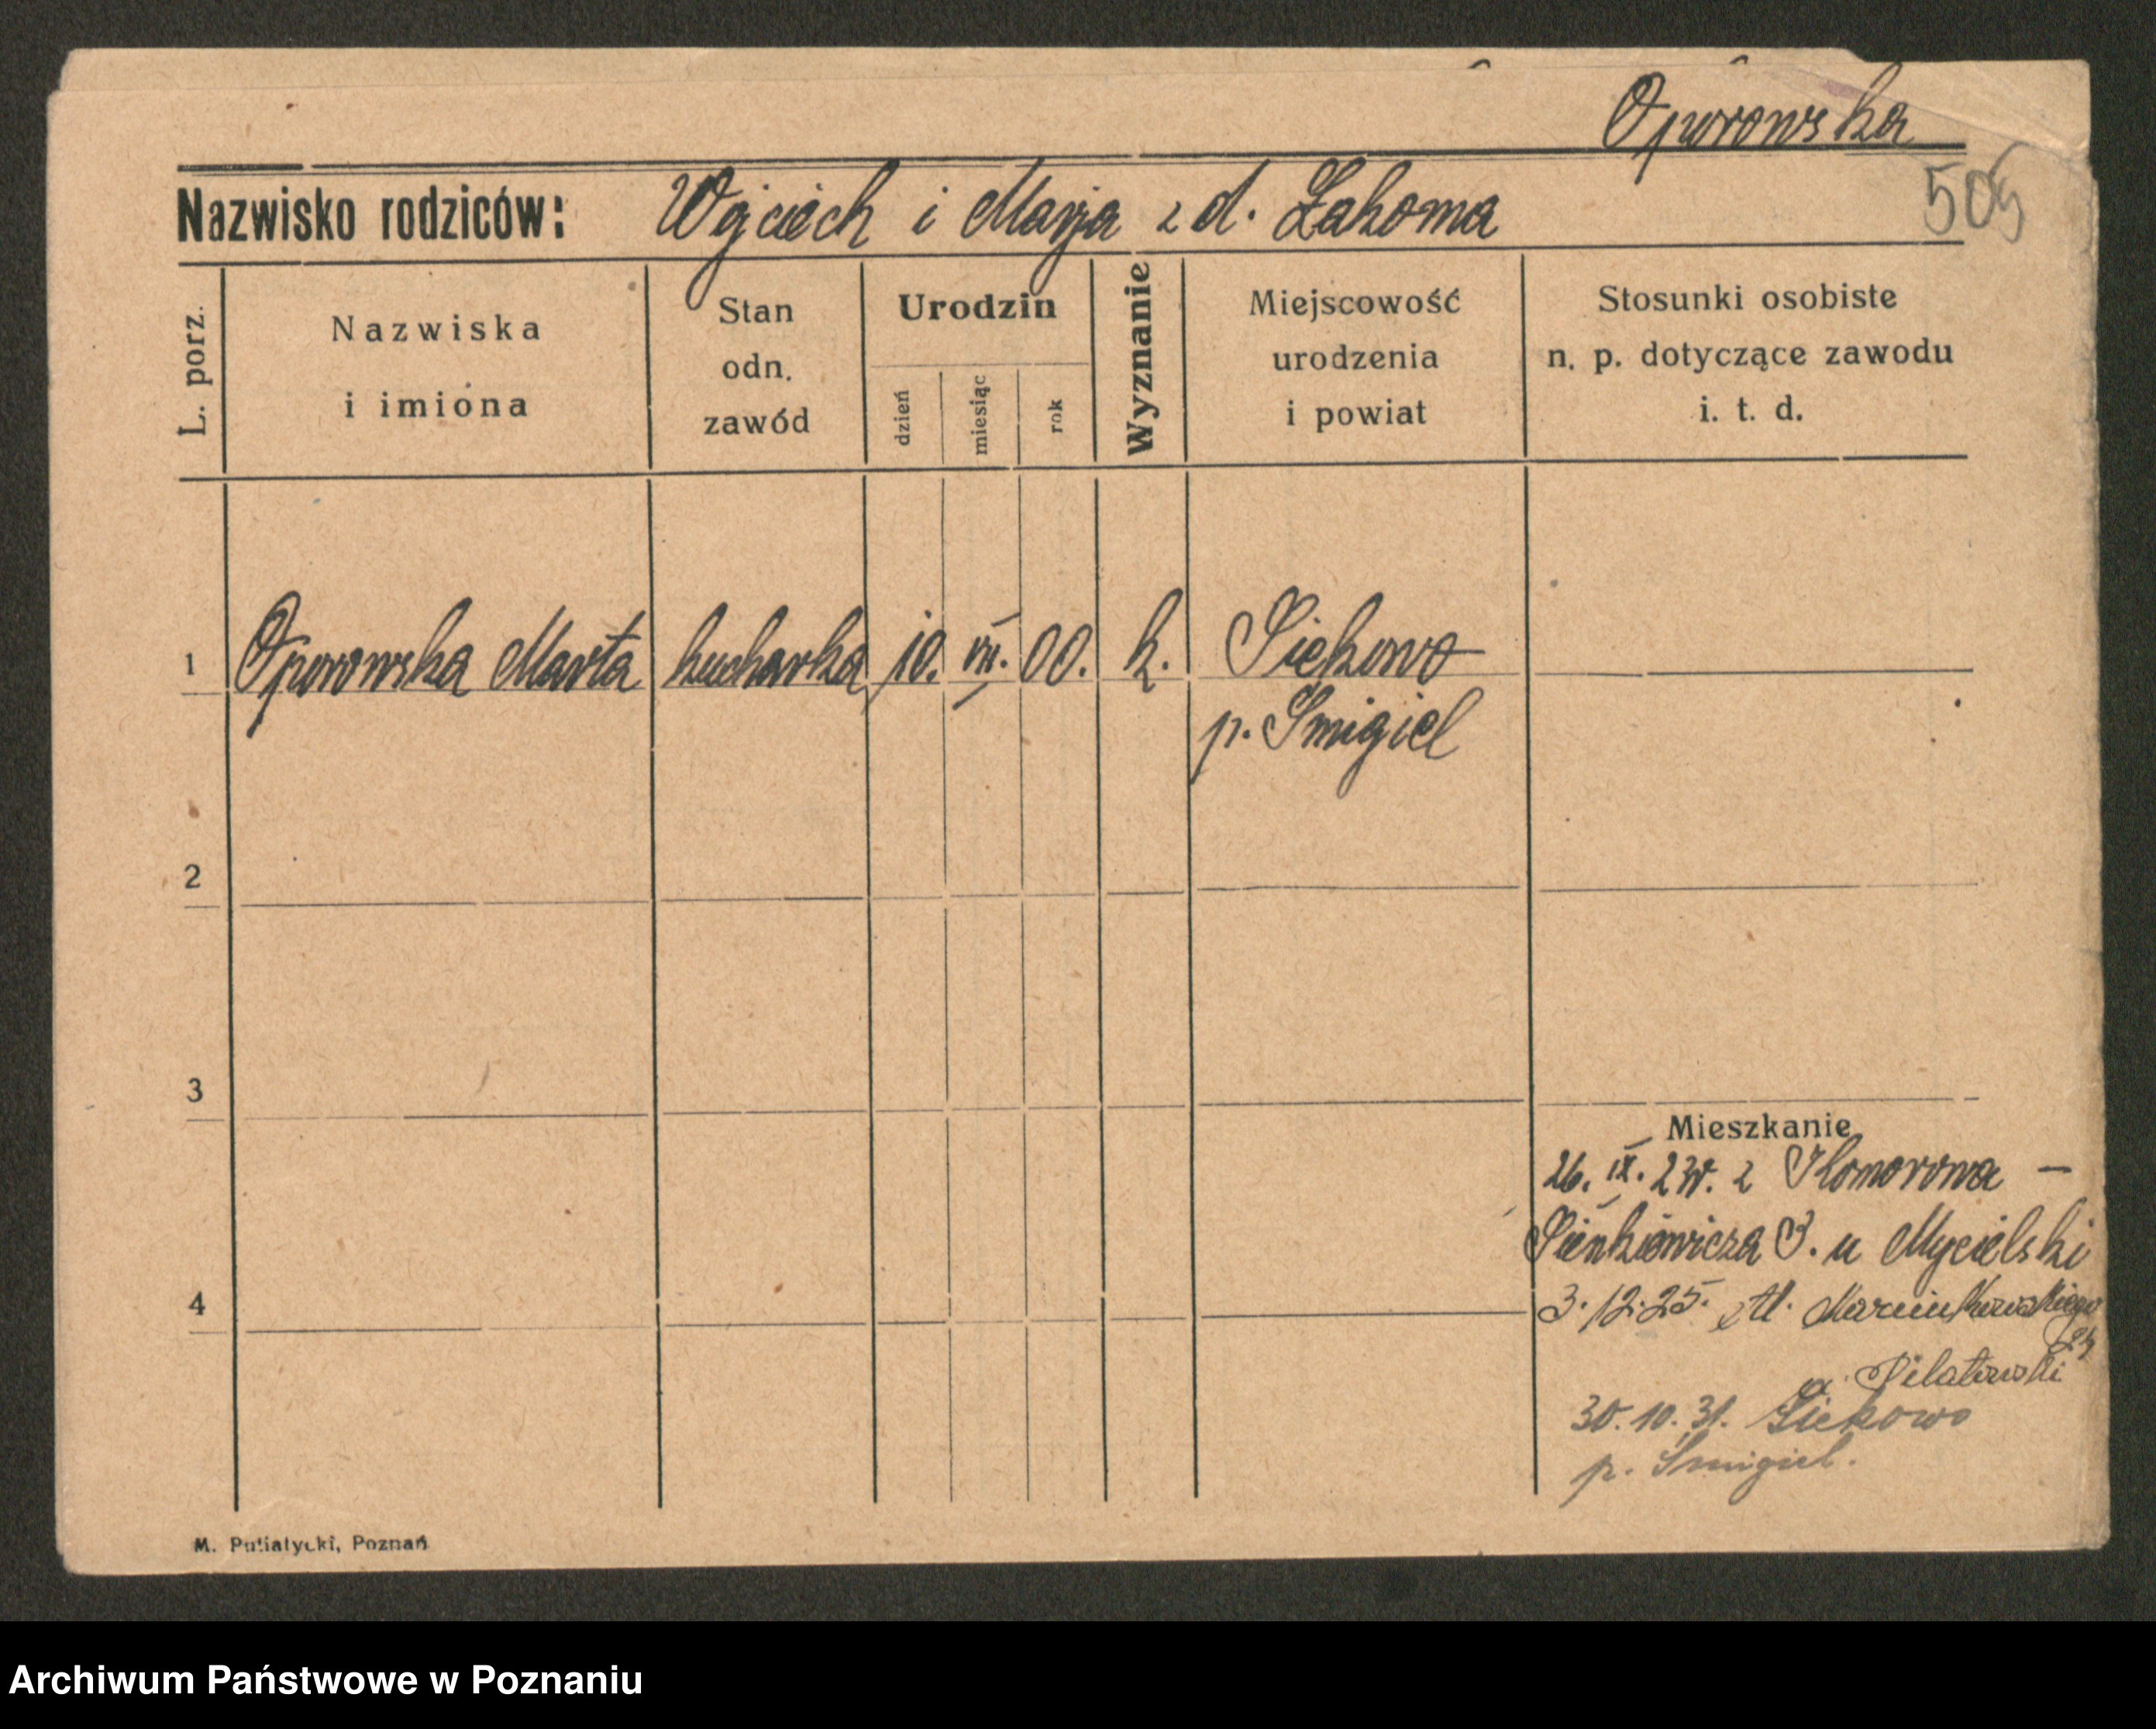 Oporowska
505
Nazwisko rodziców: Wojciech i Marja z d. Łakoma
L. porz.
Nazwiska i imiona
Stan odn. zawód
Urodzin
dzień
miesiąc
rok
Wyznanie
Miejscowość urodzenia i powiat
Stosunki osobiste n. p. dotyczące zawodu i. t. d.
1 Oporowska Marta kucharka 10. VII. 00. k. Siekowo
p. Smigiel
2
3
Mieszkanie
26. IX. z Komorowa —
Sienkiewicza 3. u Mycielski
4
3.12.25. Al. Marcinkowskiego
24
Pilatowski
30.10.31. Siekowo
p. Śmigiel.
M. Putiatycki, Poznań
Archiwum Państwowe w Poznaniu